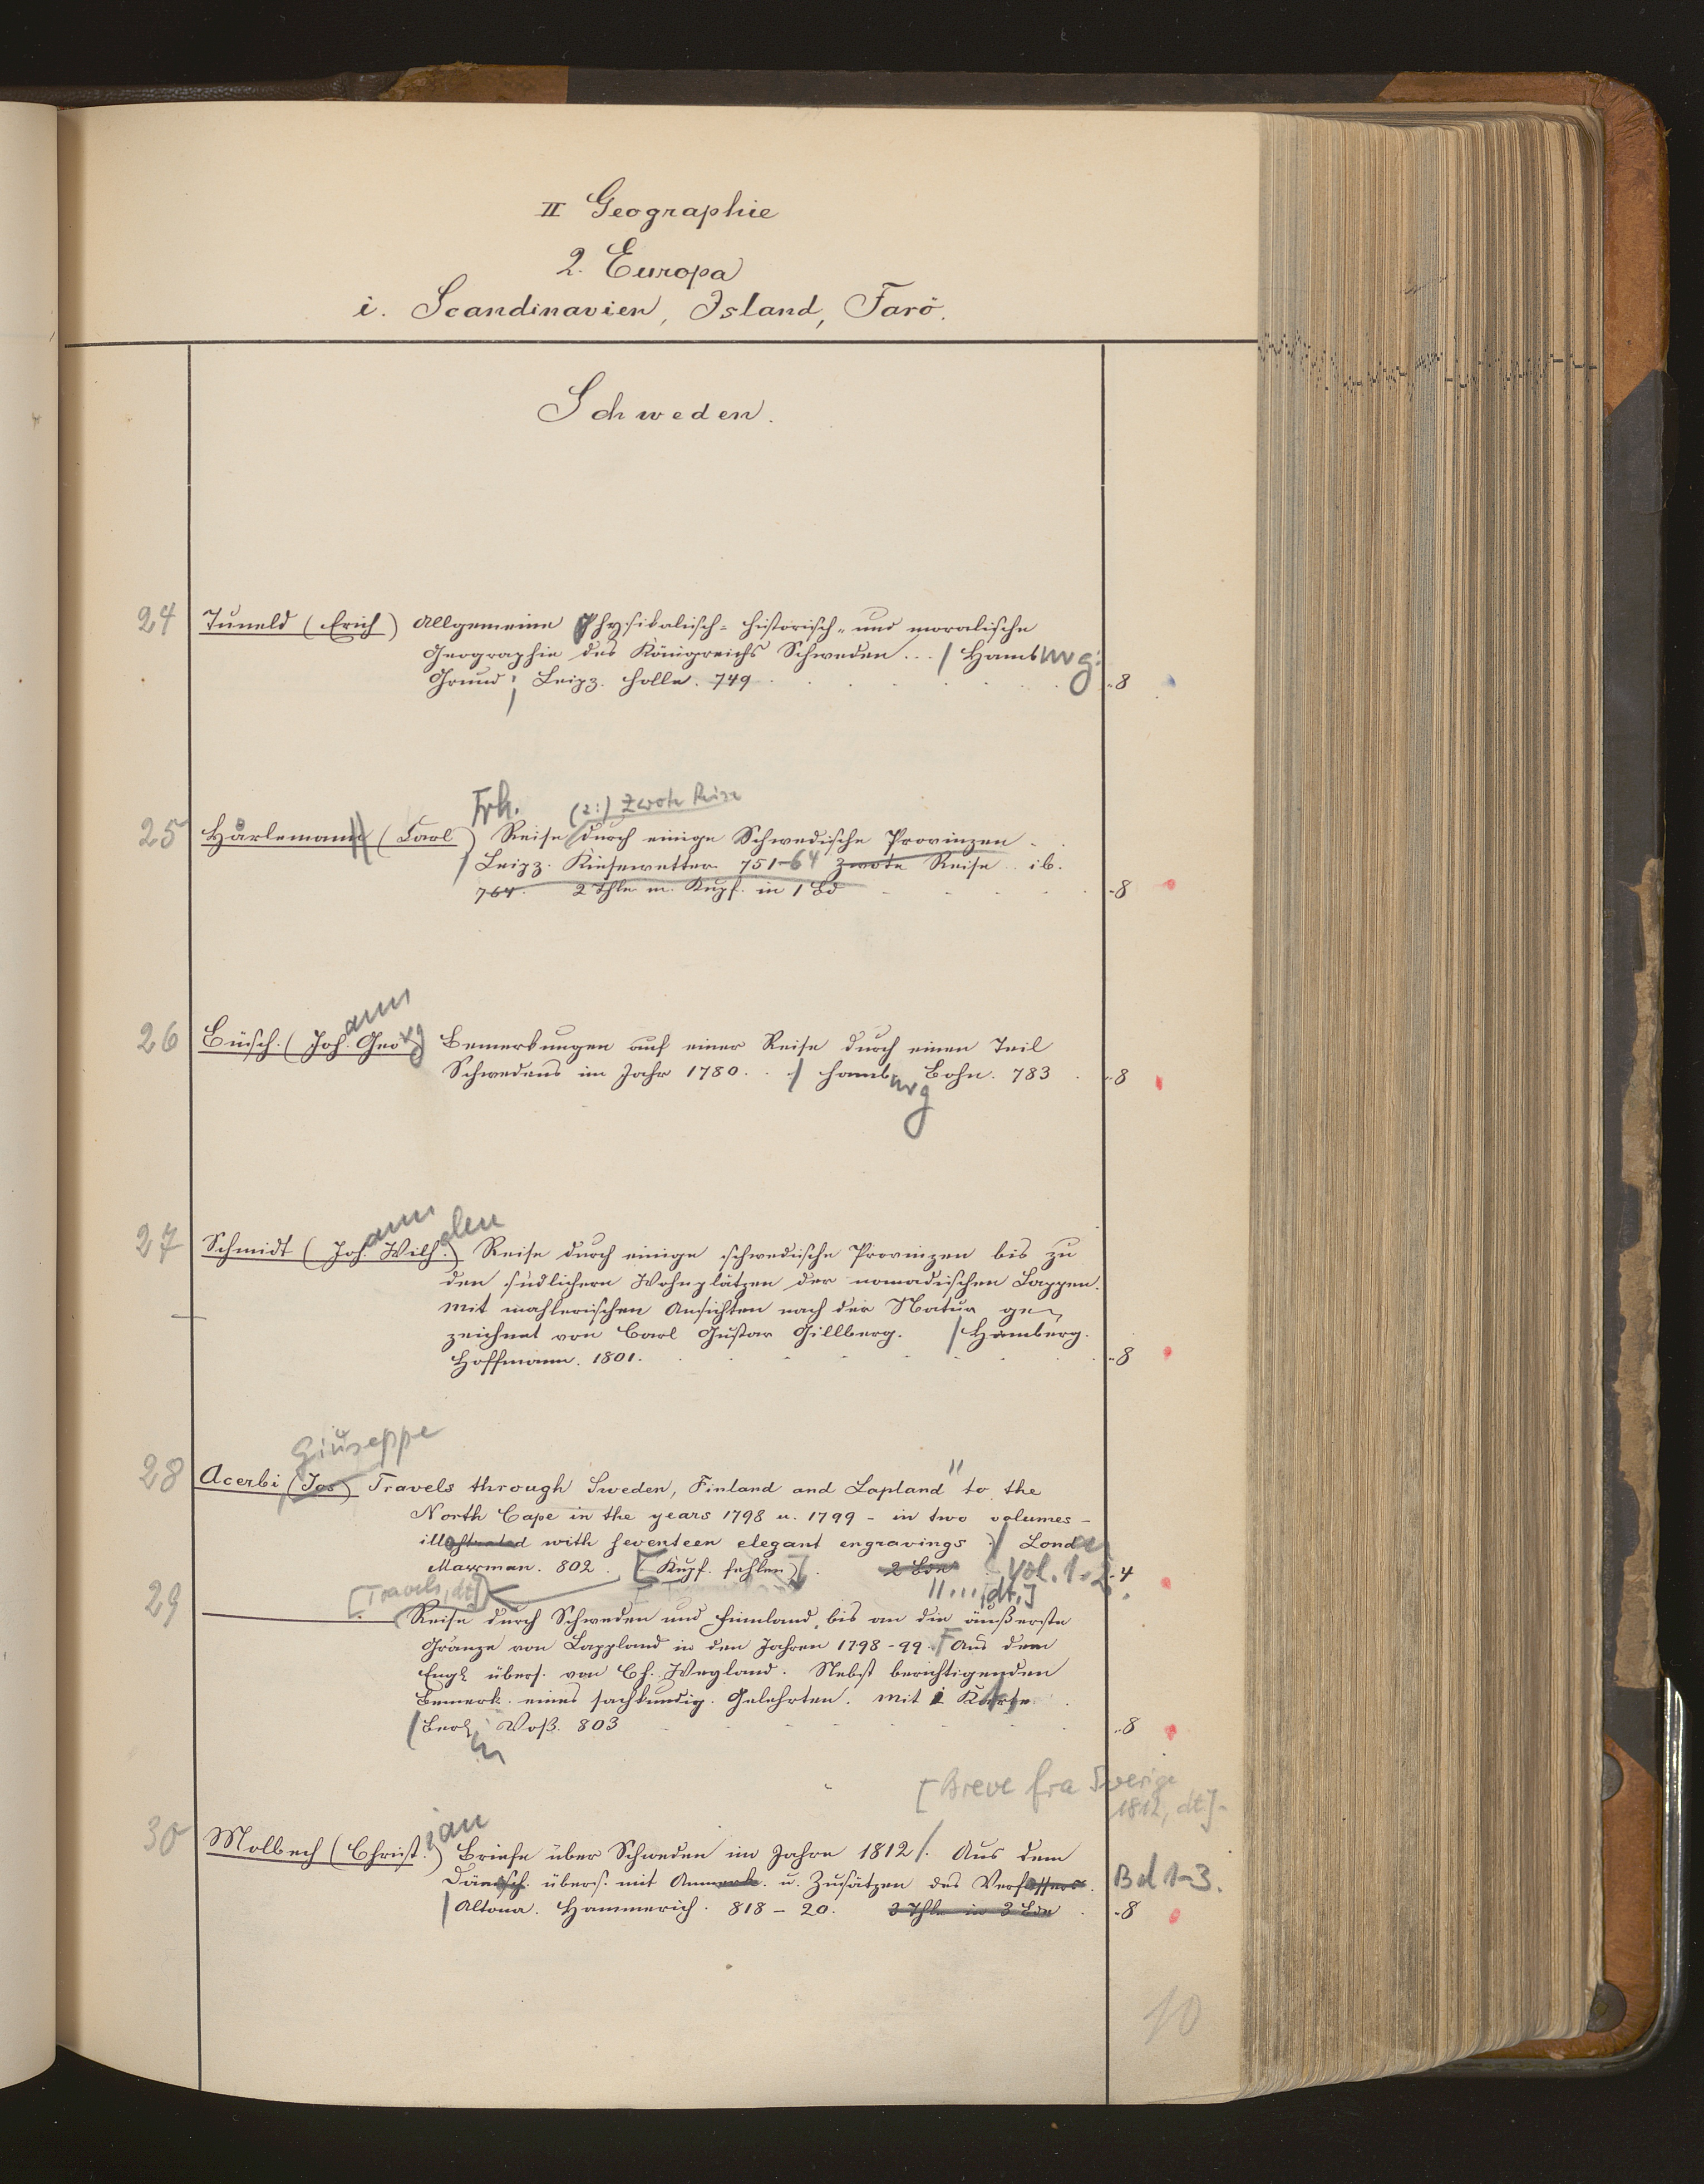 II Geographie
2. Europa
i. Scandinavien, Island, Farö.
Schweden.
24 Tuneld (Erich) Allgemeine Physikalisch- historisch- und moralische
Geographie des Königreichs Schweden... / Hamburg:
Grund; Leipz. Holle. 749 8
Frh. (2:) Zwote Reise
25 Hårlemann (Carl) Reise durch einige Schwedische Provinzen
/ Leipz. Kiesewetter 751-64 Zwote Reise ib.
764. 2 Thle m. Kupf. in 1 Bd 8
26 Büsch (Johann Georg) Bemerkungen auf einer Reise durch einen Teil
Schwedens im Jahr 1780. / Hamburg Bohn. 783 8
27 Schmidt (Johann Wilh.) Reise durch einige schwedische Provinzen bis zu
den südlichern Wohnplätzen der nomadischen Lappen.
Mit mahlerischen Ansichten nach der Natur ge-
zeichnet von Carl Gustav Gillberg. / Hamburg.
Hoffmann. 1801. 8
Giuseppe
28 Acerbi (Jos) Travels through Sweden, Finland and Lapland " to the
North Cape in the years 1798 u. 1799 - in two volumes -
illustrated with seventeen elegant engravings / Londo
Mawman. 802. [(Kupf. fehlen)] 2 Bde Vol. 1-2. 4
[Travels, dt.] "....,dt.]
29 Reise durch Schweden und Finnland, bis an die äußerste
Gränze von Lappland in den Jahren 1798-99. Aus dem
Engl übers. von Ch. Weyland. Nebst berichtigenden
Bemerk. eines sachkundig. Gelehrten. Mit 1 Karte
/ Berlin Voß. 803 8
[Breve fra Sverige
1812, dt.]
30 Molbech (Christian) Briefe über Schweden im Jahre 1812/. Aus dem
Dänisch. übers. mit Anmerk. u. Zusätzen des Verfassers. Bd 1-3.
/ Altona. Hammerich. 818-20. 3 Thle in 3 Bde 8
10